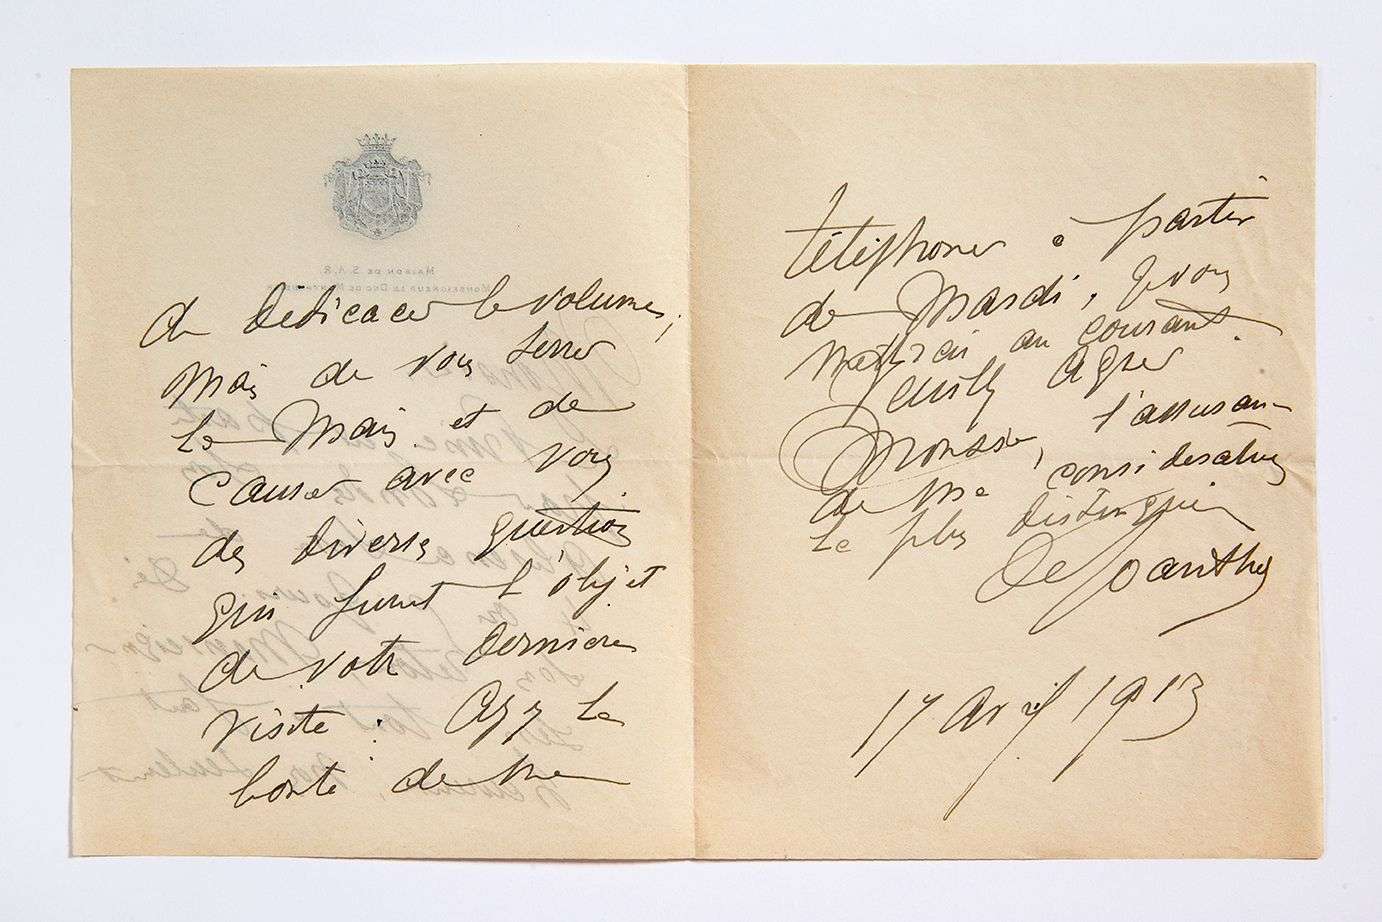 MAISON DE S.A.R.
MONSEIGNEUR LE DUC DE
de dédicacer le volume,
mais de vous serrer
la main et de
causer avec vous
des diverses questions
qui furent l'objet
de votre dernière
visite. Ayez la
bonté de me
téléphoner à partir
de Mardi, je vous
mettrai au courant.
Veuillez agréer
Monsieur, l'assuran-
de ma considération
la plus distinguée
De Joanthy
17 Avril 1913